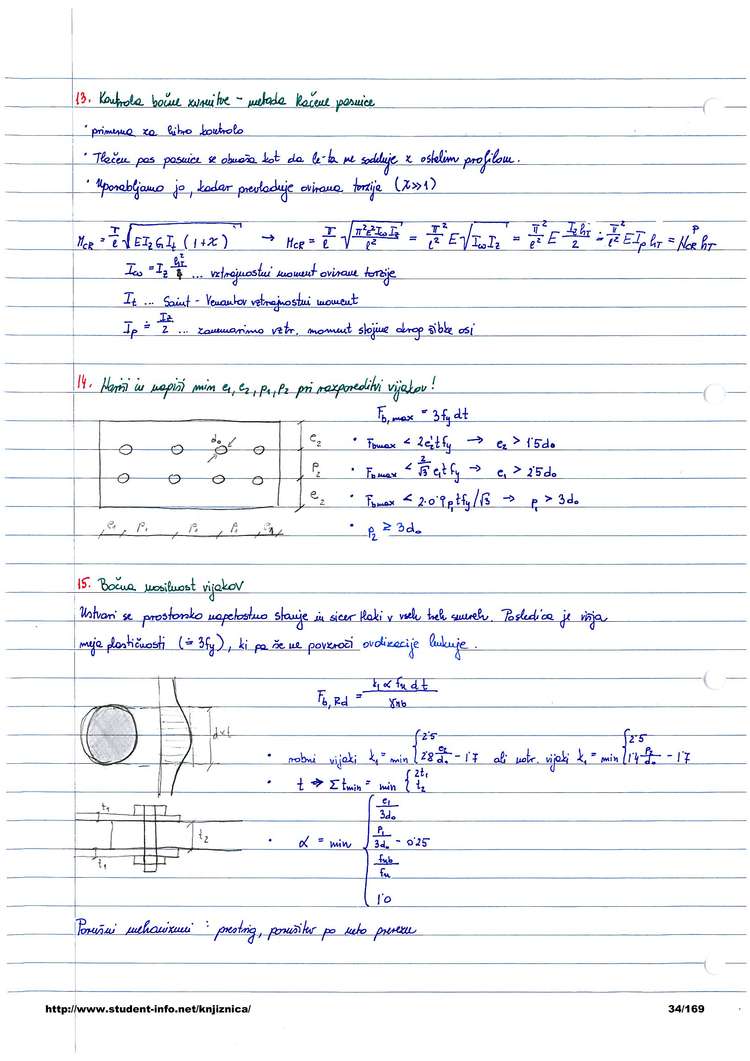 13. Kontrola bočne zvrnitve - metoda tlačene pasnice
• primerna za hitro kontrolo
• Tlačen pas pasnice se obnaša kot da le-ta ne sodeluje z ostalim profilom.
• Uporabljamo jo, kadar prevladuje ovirana torzija (χ>>1)
M_CR = π/ℓ √(E I_z G I_t (1+χ)) → M_CR = π/ℓ √(π²E² I_ω I_z / ℓ²) = π²/ℓ² E √(I_ω I_z) = π²/ℓ² E I_z h_T/2 ≐ π²/ℓ² E I_p h_T = N_CR^P h_T
I_ω = I_z h_T²/4 ... vztrajnostni moment ovirane torzije
I_t ... Saint - Venantov vztrajnostni moment
I_p ≐ I_z/2 ... zanemarimo vztr. moment stojine okrog šibke osi
14. Nariši in napiši min e₁, e₂, p₁, p₂ pri razporeditvi vijakov!
F_b,max = 3 f_y d t
d₀ e₂ • F_b,max < 2 e₂ t f_y → e₂ > 1'5 d₀
p₂ • F_b,max < 2/√3 e₁ t f_y → e₁ > 2'5 d₀
e₂ • F_b,max < 2·0'9 p₁ t f_y/√3 → p₁ > 3 d₀
e₁ p₁ p₁ p₁ e₁ • p₂ ≥ 3 d₀
15. Bočna nosilnost vijakov
Ustvari se prostorsko napetostno stanje in sicer tlaki v vseh treh smereh. Posledica je višja
meja plastičnosti (≐ 3f_y), ki pa še ne povzroči ovalizacije luknje.
F_b,Rd = k₁ α f_u d t / γ_Mb
d×t
• robni vijaki k₁ = min { 2'5 ; 2'8 e₂/d₀ - 1'7 ali notr. vijaki k₁ = min { 2'5 ; 1'4 p₂/d₀ - 1'7
• t → Σ t_min = min { 2t₁ ; t₂
t₁ t₂ t₁
• α = min { e₁/3d₀ ; p₁/3d₀ - 0'25 ; f_ub/f_u ; 1'0
Porušni mehanizmi : prestrig, porušitev po neto prerezu
http://www.student-info.net/knjiznica/ 34/169